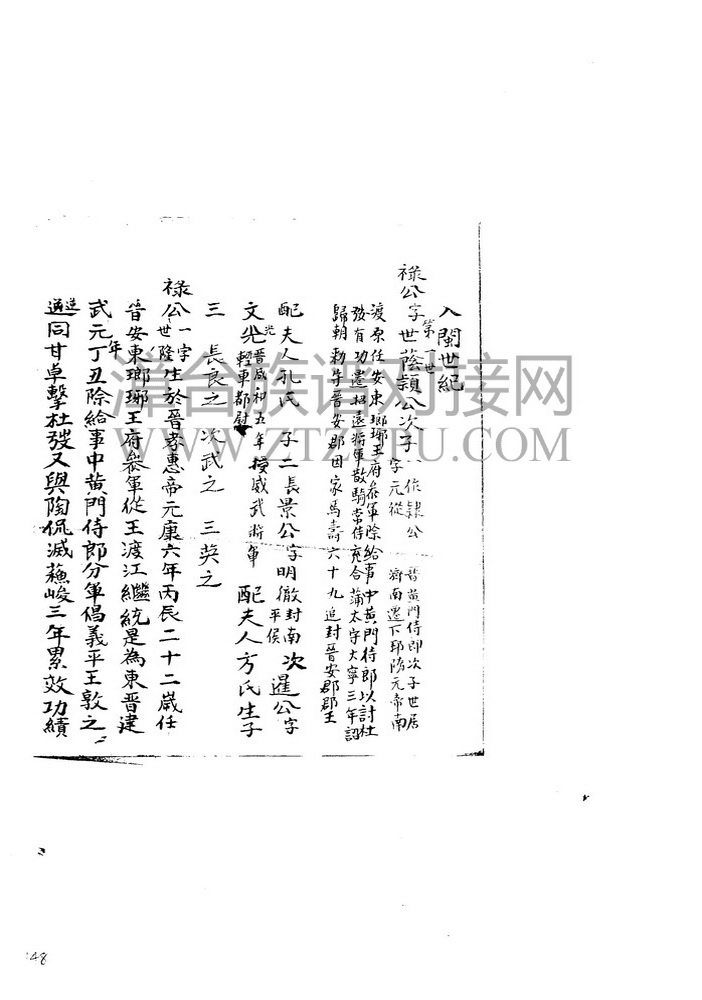 入閩世紀
第一世
祿公字世蔭頴公次子一作隸公字元從晉黃門侍郎次子世居濟南遷下邳隨元帝南
渡原任安東瑯琊王府參軍除給事中黃門侍郎以討杜
發有功遷招遠將軍散騎常侍充合蒲太守大寧三年詔
歸朝勅守晉安郡因家焉壽六十九追封晉安郡郡王
配夫人孔氏 子二長景公字明徹封南平侯次暹公字
文光晋咸和五年授威武將軍輕車都尉 配夫人方氏生子
三 長良之 次武之 三英之
祿公一字世隆生於晉孝惠帝元康六年丙長二十二歲任
晉安東瑯琊王府參軍從王渡江繼統是為東晉建
武元年丁丑除給事中黃門侍郎分軍倡義平王敦之
進同甘卓擊杜發又與陶侃滅蘓峻三年累效功績
漳台族谱对接网
WWW.ZTZUPU.COM
48